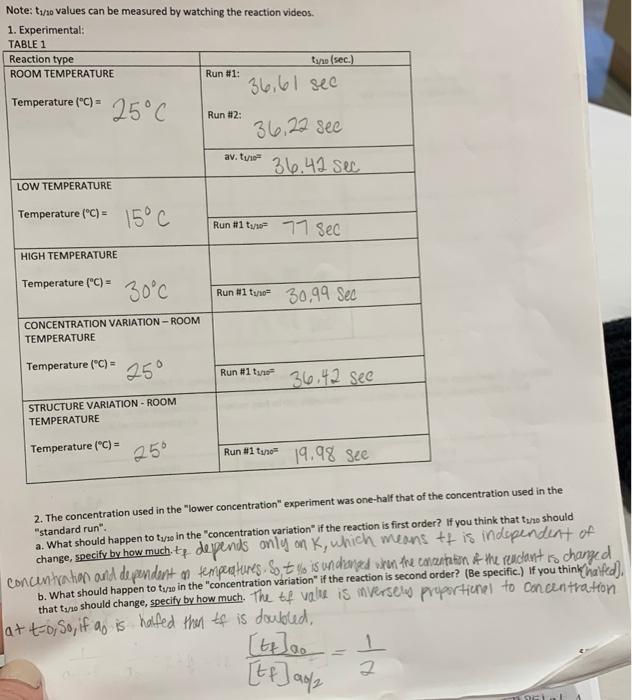 Note: t1/10 values can be measured by watching the reaction videos.
1. Experimental:
TABLE 1
Reaction type
t1/10 (sec.)
ROOM TEMPERATURE
Run #1:
36,61 sec
Temperature (°C) = 25°C
Run #2:
36,22 sec
av. t1/10= 36.42 sec
LOW TEMPERATURE
Temperature (°C) = 15°C
Run #1 t1/10= 77 sec
HIGH TEMPERATURE
Temperature (°C) = 30°C
Run #1 t1/10= 30,99 sec
CONCENTRATION VARIATION – ROOM
TEMPERATURE
Temperature (°C) = 25°
Run #1 t1/10= 36.42 sec
STRUCTURE VARIATION - ROOM
TEMPERATURE
Temperature (°C) = 25°
Run #1 t1/10= 19.98 sec
2. The concentration used in the "lower concentration" experiment was one-half that of the concentration used in the
"standard run".
a. What should happen to t1/10 in the "concentration variation" if the reaction is first order? If you think that t1/10 should
change, specify by how much. tf depends only on K, which means tf is independent of
concentration and dependent on temperatures. So, t 1/10 is unchanged when the concentration of the reactant is changed
(halfed).
b. What should happen to t1/10 in the "concentration variation" if the reaction is second order? (Be specific.) If you think
that t1/10 should change, specify by how much. The tf value is inversely proportional to concentration
at t=0, So, if a0 is halfed then tf is doubled.
[tf]a0 / [tf]a0/2 = 1/2